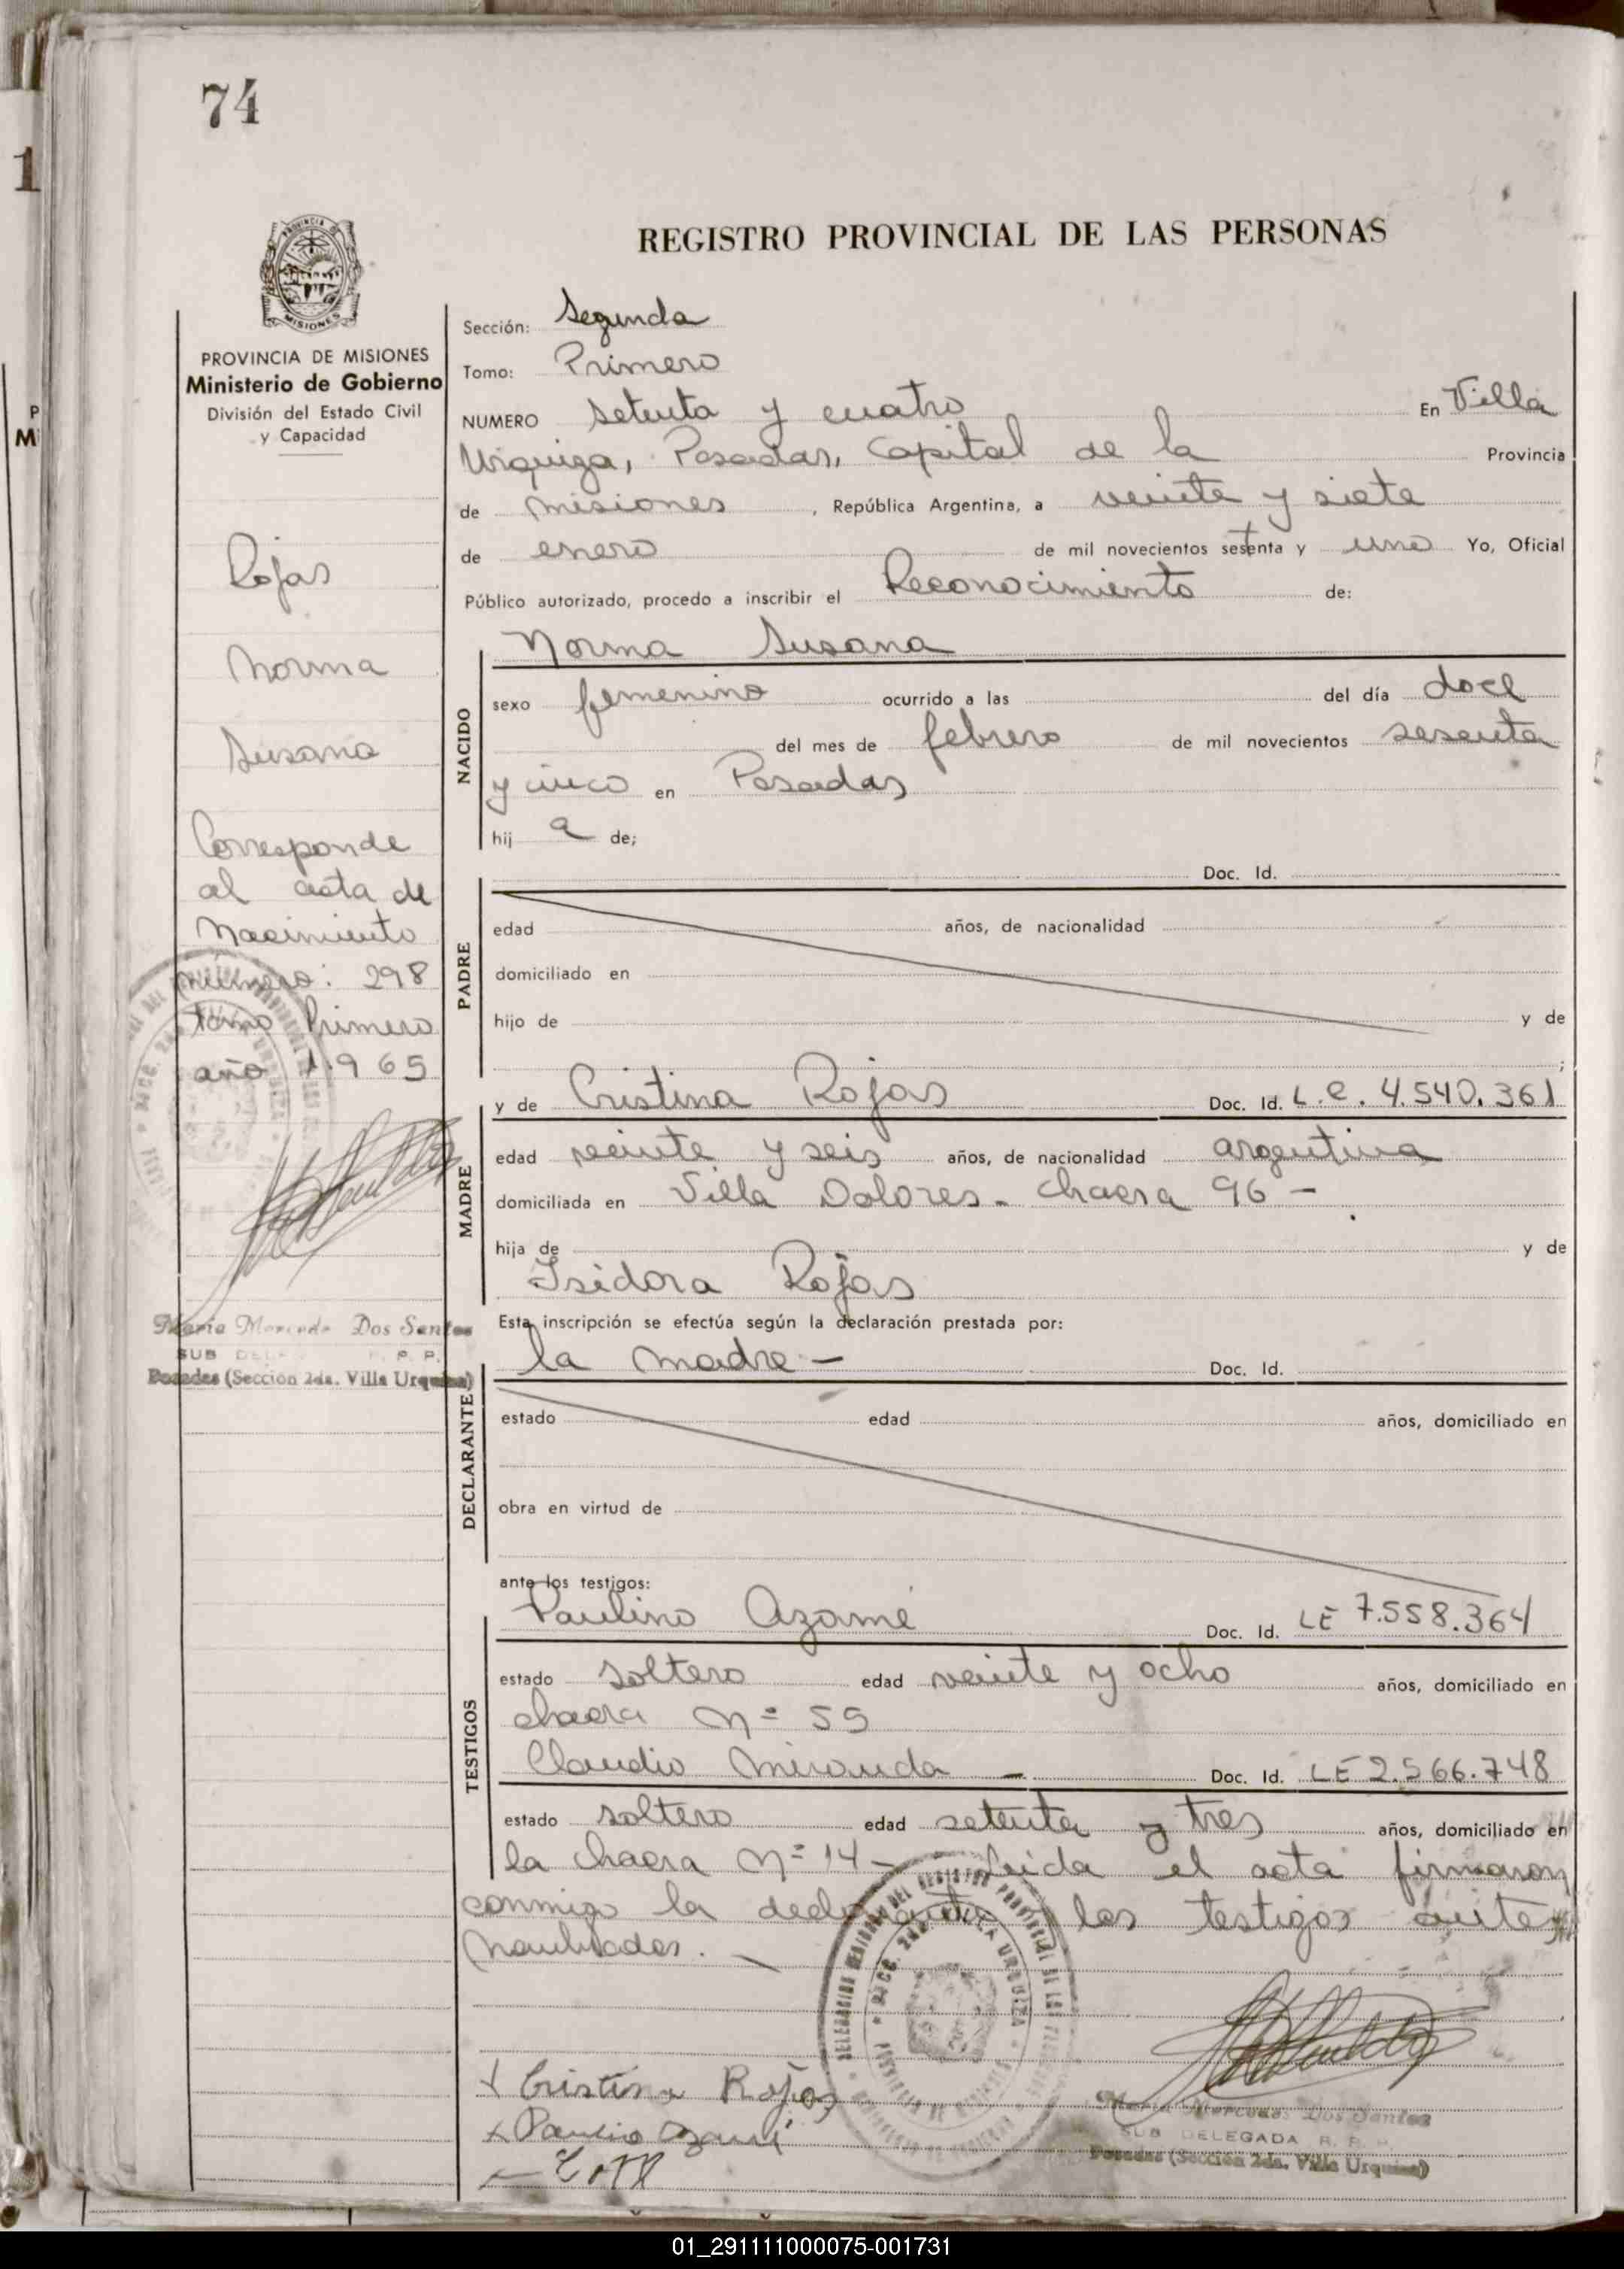 74
1
P
M
PROVINCIA DE
MISIONES
PROVINCIA DE MISIONES
Ministerio de Gobierno
División del Estado Civil
y Capacidad
Rojas
Norma
Susana
Corresponde
al acta de
Nacimiento
número: 298
tomo Primero
año 1.965
María Mercedes Dos Santos
SUB
R. P. P.
Posadas (Sección 2da. Villa Urquiza)
REGISTRO PROVINCIAL DE LAS PERSONAS
Sección: Segunda
Tomo: Primero
NUMERO setenta y cuatro En Villa
Urquiza, Posadas, Capital de la Provincia
de Misiones, República Argentina, a veinte y siete
de enero de mil novecientos setenta y uno Yo, Oficial
Público autorizado, procedo a inscribir el Reconocimiento de:
NACIDO
Norma Susana
sexo femenino ocurrido a las del día doce
del mes de febrero de mil novecientos sesenta
y cinco en Posadas
hij a de;
PADRE
Doc. Id.
edad años, de nacionalidad
domiciliado en
hijo de y de
;
MADRE
y de Cristina Rojas Doc. Id. L.C. 4.540.361
edad veinte y seis años, de nacionalidad argentina
domiciliada en Villa Dolores - chacra 96 -
hija de y de
Isidora Rojas
Esta inscripción se efectúa según la declaración prestada por:
DECLARANTE
la madre - Doc. Id.
estado edad años, domiciliado en
obra en virtud de
ante los testigos:
TESTIGOS
Paulino Azame Doc. Id. LE 7.558.364
estado soltero edad veinte y ocho años, domiciliado en
chacra Nº 55
Claudio Miranda - Doc. Id. LE 2.566.748
estado soltero edad setenta y tres años, domiciliado en
la chacra Nº 14 - Leida el acta firmaron
conmigo la declarante y los testigos antes
nombrados. -
x Cristina Rojas
x Paulino Azame
María Mercedes Dos Santos
SUB DELEGADA R. P. P.
Posadas (Sección 2da. Villa Urquiza)
01_291111000075-001731